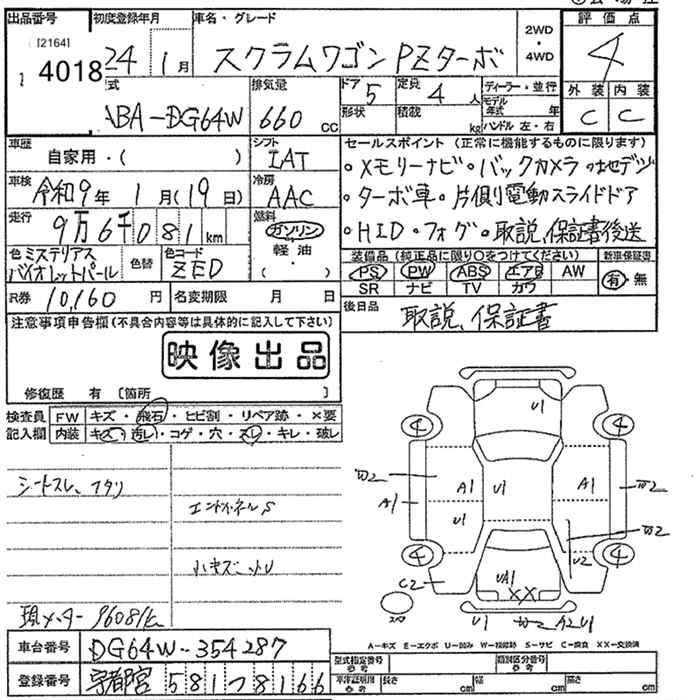 出品番号 初度登録年月 車名・グレード 評価点
[2164]
4018 24年 1月 スクラムワゴン PZターボ 2WD・4WD 4
式 排気量 ドア 定員 ディーラー・並行 外装 内装
ABA-DG64W 660cc 5 4人 C C
形状 積載 kg モデル年式 年 ハンドル 左・右
車歴 シフト セールスポイント (正常に機能するものに限ります)
自家用・( ) IAT
・メモリーナビ・バックカメラ・地デジ
車検 令和9年 1月(19日) 冷房 AAC
・ターボ車・片側電動スライドドア
走行 9万6千081km 燃料 ガソリン・軽油・( )
・HID・フォグ・取説、保証書後送
色 ミステリアスバイオレットパール 色替 色コード ZED
装備品 (純正品に限り○をつけてください) 新車保証書
PS PW ABS エアB AW 有・無
SR ナビ TV カワ
R券 10,160円 名変期限 月 日
後日品 取説、保証書
注意事項申告欄(不具合内容等は具体的に記入して下さい)
映像出品
修復歴 有 〔箇所 〕
検査員記入欄 FW キズ・飛石・ヒビ割・リペア跡・×要
内装 キズ・汚レ・コゲ・穴・スレ・キレ・破レ
U1
4 4
W2 A1 U1 A1 W2
A1 U1 W2
U2
4 4
C2 UA1 XX
U1 W2 A2 U1
シートスレ、フタリ
エンドパネルS
小キズ・凹U
現メーター 96081km
A-キズ E-エクボ U-凹み W-補修跡 S-サビ C-腐食 XX-交換済
車台番号 DG64W-354287
型式指定番号 参考 類別区分番号 参考
登録番号 宇都宮 581 つ 8166
車庫証明用 参考 長さ cm 幅 cm 高さ cm